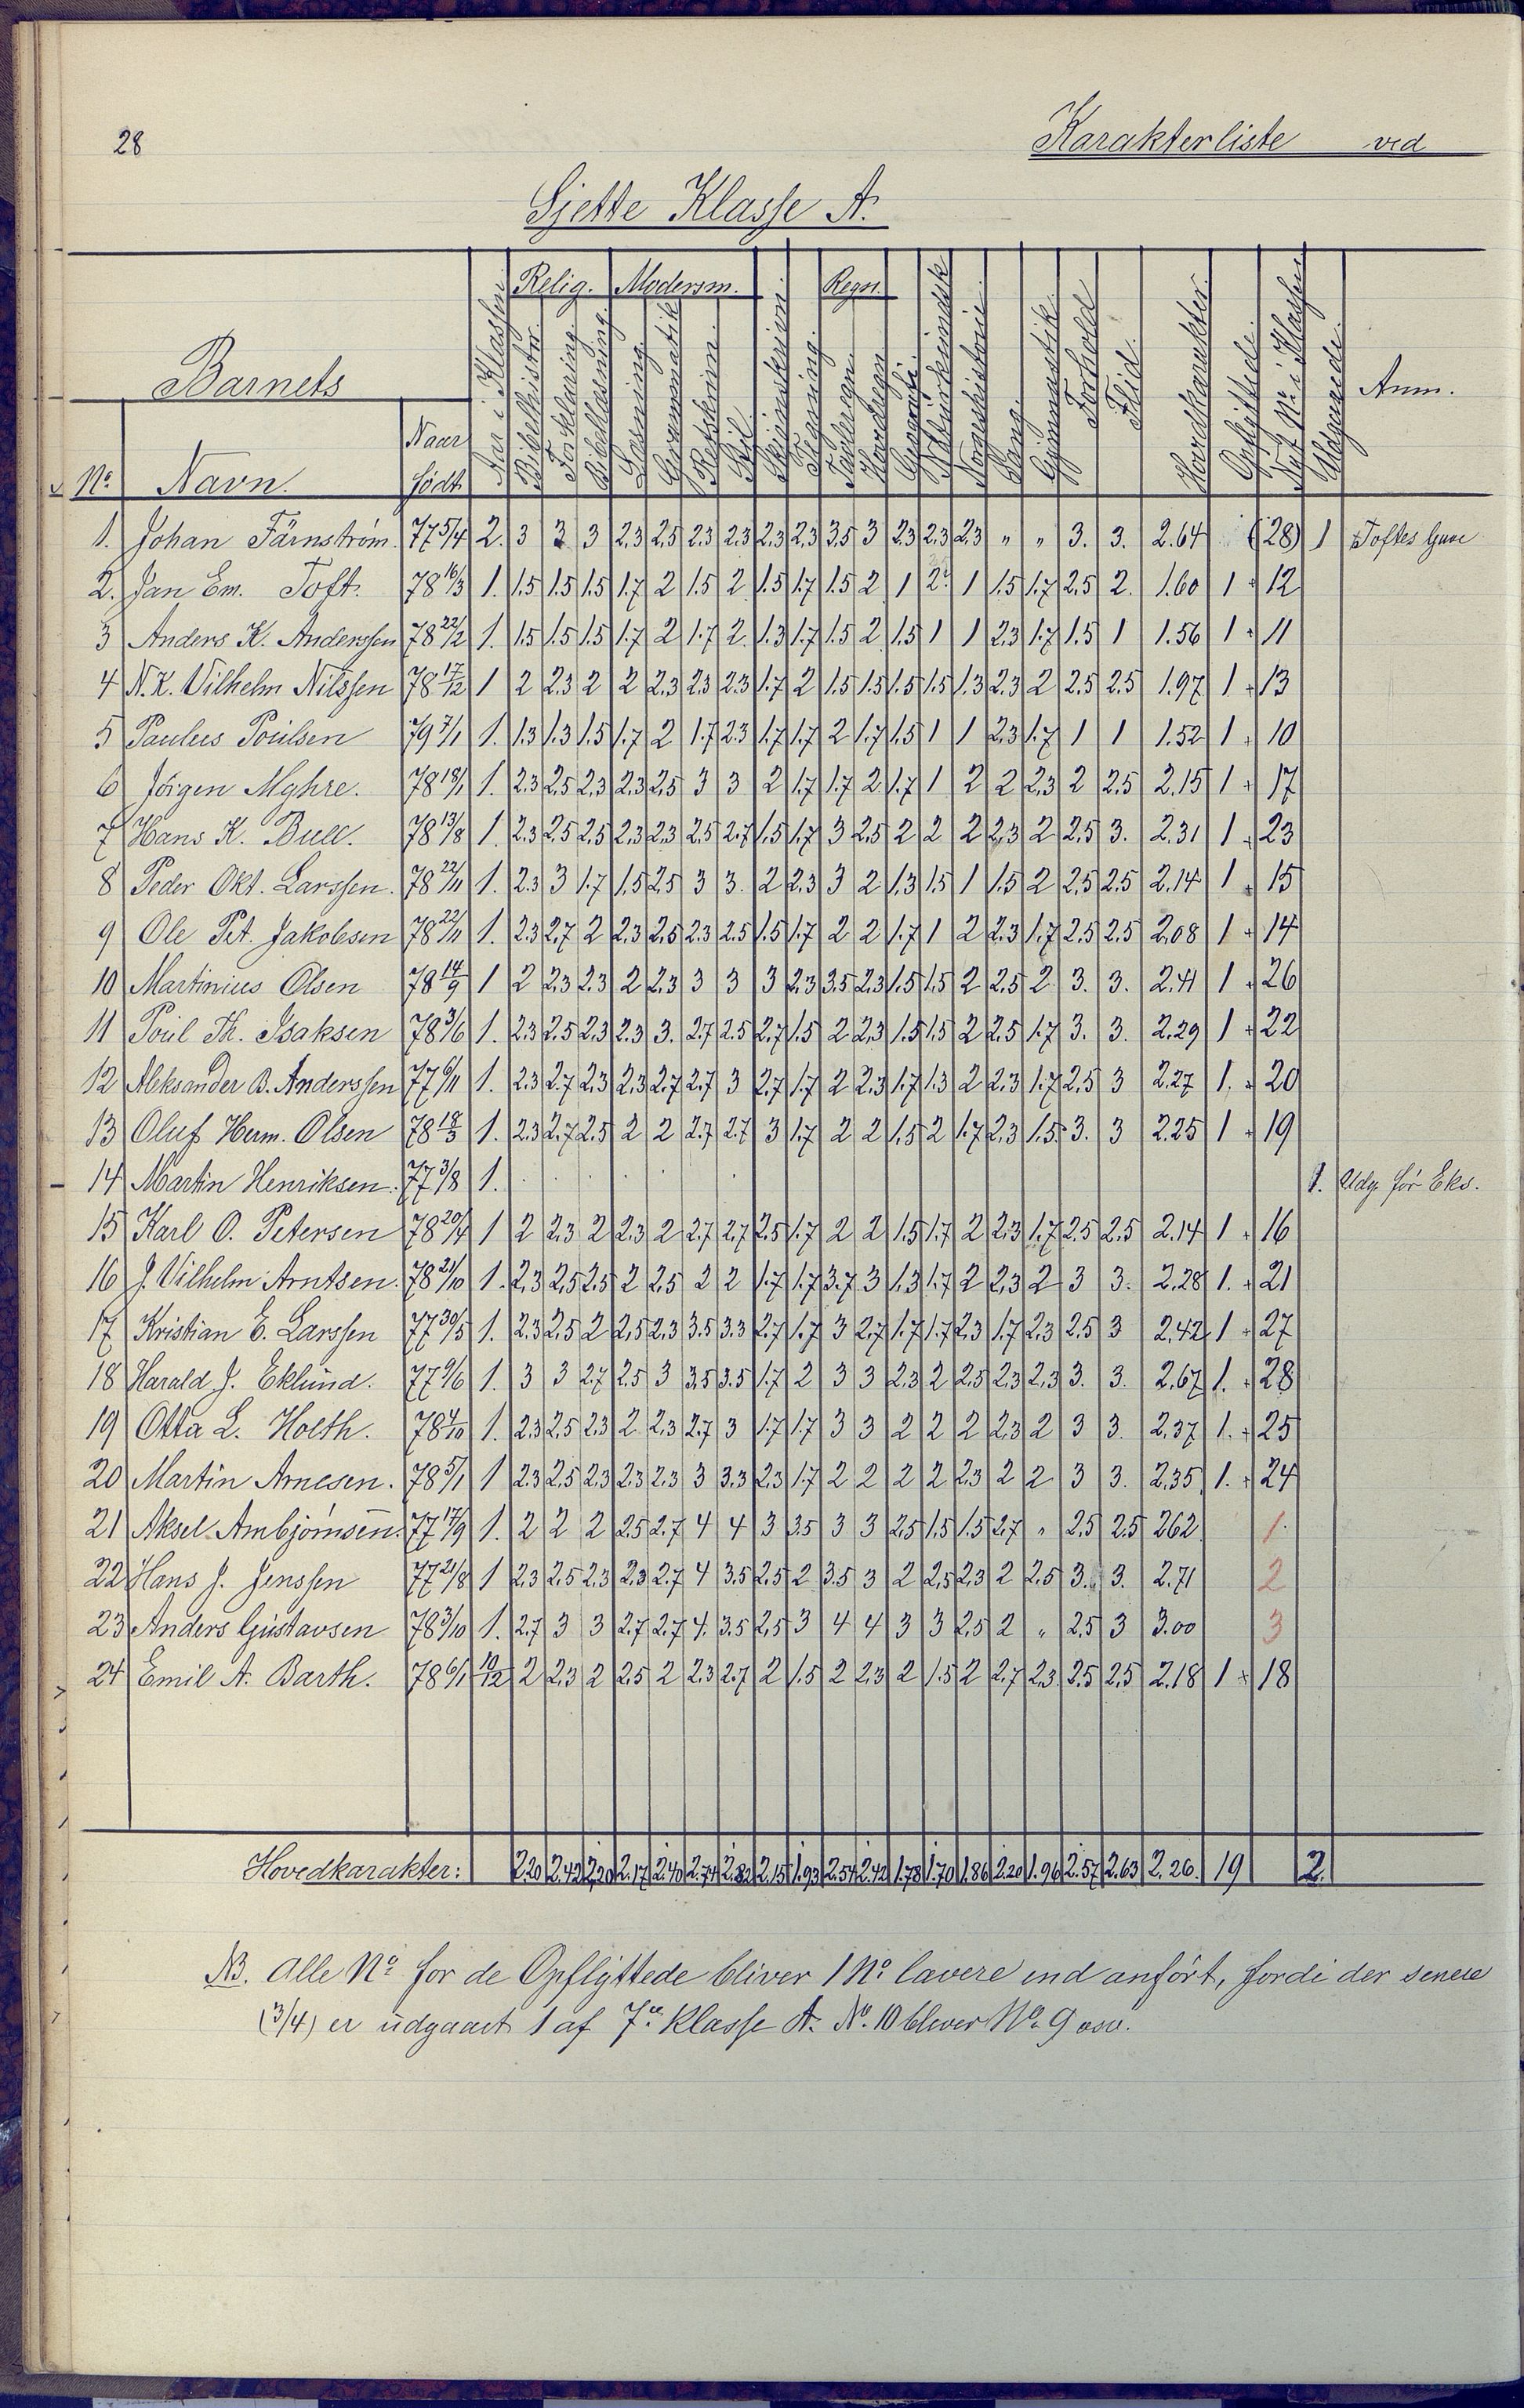 28
Karakterliste ved
Sjette Klasse A.
Barnets
No. Navn. Naar født Aar i Klassen Relig. Bibelhistor. Forklaring. Bibellæsning. Modersm. Læsning. Grammatik Retskrivn. Stil Skjønskrivn. Tegning. Regn. Tavleregn. Hovedregn Geografi. Naturkundsk. Norgeshistorie. Sang. Gymnastik. Forhold Flid. Hovedkarakter. Opflyttede. Nyt No. i Klassen Udgaaede. Anm.
1. Johan Färnström. 77 5/4 2. 3 3 3 2.3 2.5 2.3 2.3 2.3 2.3 3.5 3 2.3 2.3 2.3 " " 3. 3. 2.64 (28) 1 Toftes Gave
2. Jan Em. Toft. 78 16/3 1. 1.5 1.5 1.5 1.7 2 1.5 2 1.5 1.7 1.5 2 1 2 1 1.5 1.7 2.5 2. 1.60 1 + 12
3 Anders K. Anderssen 78 22/2 1. 1.5 1.5 1.5 1.7 2 1.7 2. 1.3 1.7 1.5 2 1.5 1 1 2.3 1.7 1.5 1 1.56 1 + 11
4 N. K. Vilhelm Nilssen 78 17/12 1 2 2.3 2 2 2.3 2.3 2.3 1.7 2 1.5 1.5 1.5 1.5 1.3 2.3 2 2.5 2.5 1.97 1 + 13
5 Paulus Poulsen 79 7/1 1. 1.3 1.3 1.5 1.7 2 1.7 2.3 1.7 1.7 2 1.7 1.5 1 1 2.3 1.7 1 1 1.52 1 + 10
6 Jörgen Myhre. 78 18/1 1. 2.3 2.5 2.3 2.3 2.5 3 3 2 1.7 1.7 2 1.7 1 2 2 2.3 2 2.5 2.15 1 + 17
7 Hans K. Bull. 78 13/8 1. 2.3 2.5 2.5 2.3 2.3 2.5 2.7 1.5 1.7 3 2.5 2 2 2 2.3 2 2.5 3. 2.31 1 + 23
8 Peder Okt. Larssen. 78 22/11 1. 2.3 3 1.7 1.5 2.5 3 3. 2 2.3 3 2 1.3 1.5 1 1.5 2 2.5 2.5 2.14 1 + 15
9 Ole Pet. Jakobsen 78 22/11 1. 2.3 2.7 2 2.3 2.5 2.3 2.5 1.5 1.7 2 2 1.7 1 2 2.3 1.7 2.5 2.5 2.08 1 + 14
10 Martinius Olsen 78 14/9 1 2 2.3 2.3 2 2.3 3 3 3 2.3 3.5 2.3 1.5 1.5 2 2.5 2 3. 3. 2.41 1 + 26
11 Poul Th. Isaksen 78 3/6 1. 2.3 2.5 2.3 2.3 3. 2.7 2.5 2.7 1.5 2 2.3 1.5 1.5 2 2.5 1.7 3. 3. 2.29 1 + 22
12 Aleksander B. Anderssen 77 6/11 1. 2.3 2.7 2.3 2.3 2.7 2.7 3 2.7 1.7 2 2.3 1.7 1.3 2 2.3 1.7 2.5 3 2.27 1. + 20
13 Oluf Herm. Olsen 78 18/3 1. 2.3 2.7 2.5 2 2 2.7 2.7 3 1.7 2 2 1.5 2 1.7 2.3 1.5 3. 3 2.25 1 + 19
14 Martin Henriksen. 77 3/8 1. 1. Udg. før Eks.
15 Karl O. Petersen 78 20/4 1 2 2.3 2 2.3 2 2.7 2.7 2.5 1.7 2 2 1.5 1.7 2 2.3 1.7 2.5 2.5 2.14 1 + 16
16 J. Vilhelm Arntsen. 78 21/10 1. 2.3 2.5 2.5 2 2.5 2 2 1.7 1.7 3.7 3 1.3 1.7 2 2.3 2 3 3. 2.28 1. + 21
17 Kristian E. Larssen 77 30/5 1. 2.3 2.5 2 2.5 2.3 3.5 3.3 2.7 1.7 3 2.7 1.7 1.7 2.3 1.7 2.3 2.5 3 2.42 1 + 27
18 Harald J. Eklund. 77 9/6 1. 3 3 2.7 2.5 3 3.5 3.5 1.7 2 3 3 2.3 2 2.5 2.3 2.3 3. 3. 2.67 1. + 28
19 Otta L. Holth. 78 4/10 1. 2.3 2.5 2.3 2 2.3 2.7 3 1.7 1.7 3 3 2 2 2 2.3 2 3 3. 2.37 1. + 25
20 Martin Arnesen. 78 5/1 1 2.3 2.5 2.3 2.3 2.3 3 3.3 2.3 1.7 2 2 2 2 2.3 2 2 3 3. 2.35 1. + 24
21 Aksel Arnbjørnsen. 77 17/9 1. 2 2 2 2.5 2.7 4 4 3 3.5 3 3 2.5 1.5 1.5 2.7 " 2.5 2.5 2.62 1.
22 Hans J. Jenssen 77 21/8 1 2.3 2.5 2.3 2.3 2.7 4 3.5 2.5 2 3.5 3 2 2.5 2.3 2 2.5 3. 3. 2.71 2
23 Anders Gustavsen 78 3/10 1. 2.7 3 3 2.7 2.7 4. 3.5 2.5 3 4 4 3 3 2.5 2 " 2.5 3 3.00 3
24 Emil A. Barth. 78 6/1 10/12 2 2.3 2 2.5 2 2.3 2.7 2 1.5 2 2.3 2 1.5 2 2.7 2.3 2.5 2.5 2.18 1 + 18
Hovedkarakter: 2.20 2.42 2.20 2.17 2.40 2.74 2.82 2.15 1.93 2.54 2.42 1.78 1.70 1.86 2.20 1.96 2.57 2.63 2.26. 19 2.
NB. Alle No. for de Opflyttede bliver 1 No. lavere end anført, fordi der senere
(3/4) er udgaaet 1 af 7de Klasse A. No. 10 bliver No. 9 osv.